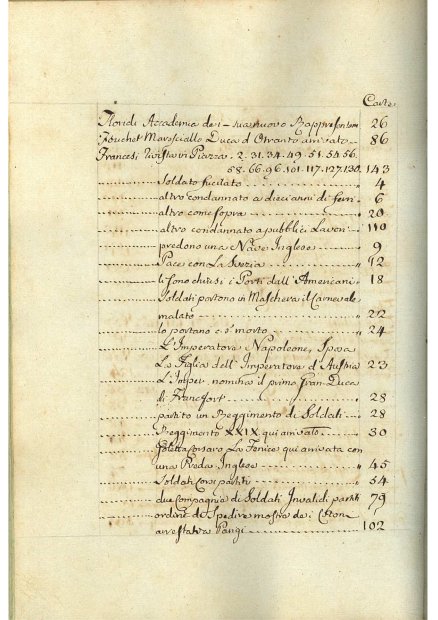 Carte
Floridi Accademia de i = sua nuovo Rappresentan 26
Fouchet Maresciallo Duca d'Otranto arrivato 86
Francesi Rivista in Piazza. 2. 31. 34. 49. 51. 54. 56.
58. 66. 96. 101. 117. 127. 130. 143
Soldato fucilato 4
altro condannato a dieci anni di ferri 6
altro come sopra 20
altro condannato a pubblici Lavori 110
predono una Nave Inglese 9
Pace con La Svezia 12
li sono chiusi i Porti dall'Americani 18
Soldati portono in Maschera il Carnevale
malato 22
lo portano e è morto 24
L'Imperatore Napoleone, Sposa
La Figlia dell'Imperatore d'Austria 23
L'Imper. nomina il primo Gran-Duca
di Francfort 28
partito un Reggimento di Soldati 28
Reggimento XXIX qui arrivato 30
Goletta Corsaro La Fenice qui arrivata con
una Preda Inglese 45
Soldati Corsi partiti 54
due Compagnie di Soldati Invalidi partiti 79
ordine di Spedire mostra de i
Parigi 102